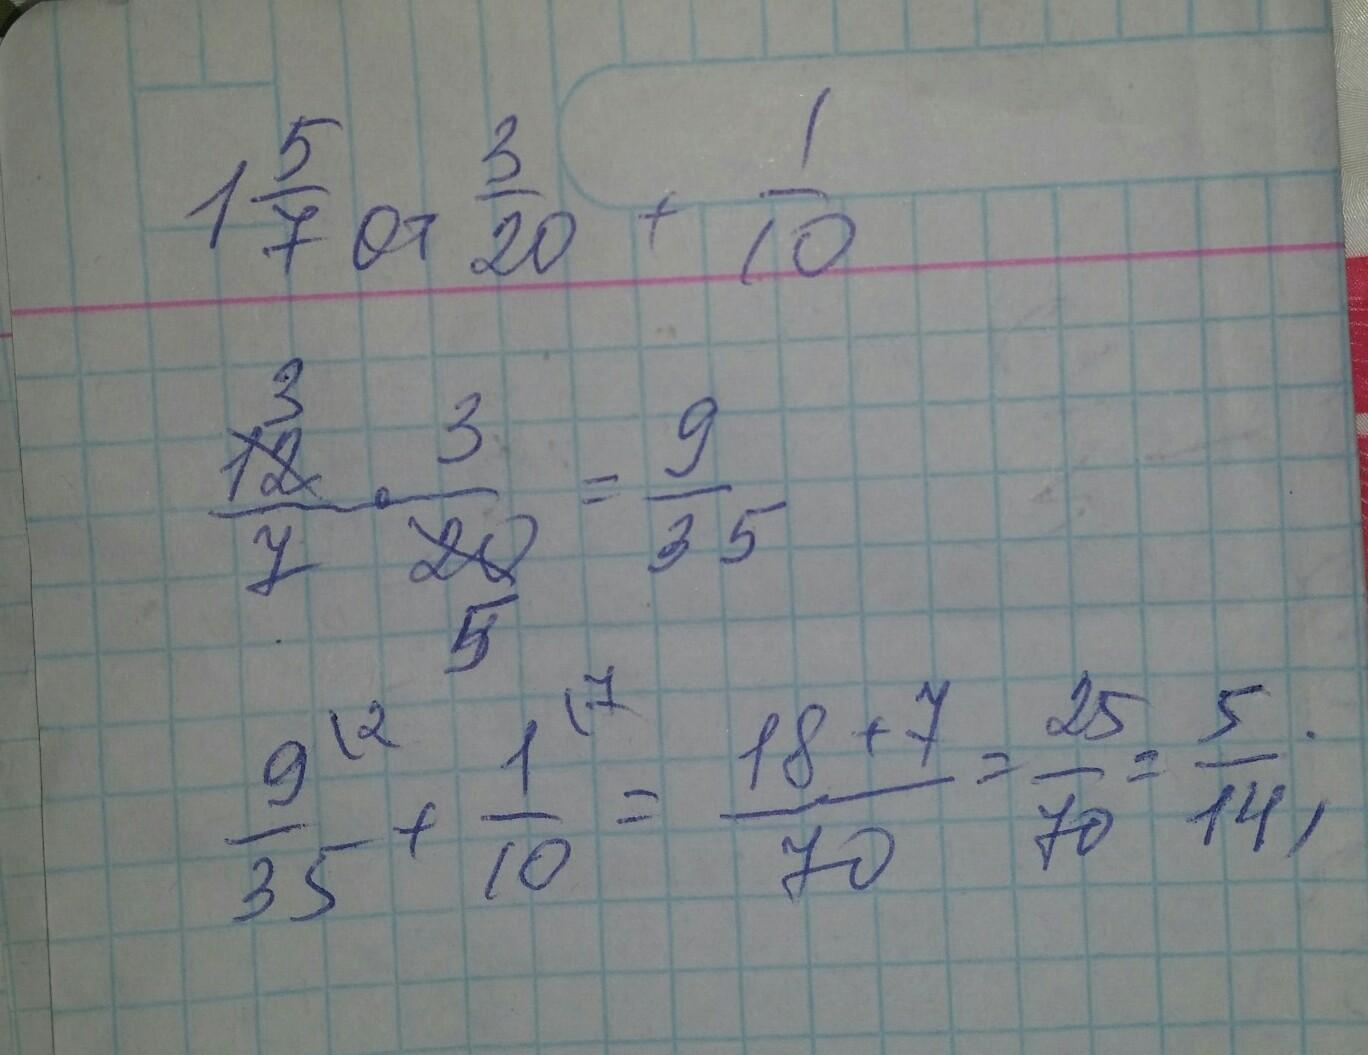 1 5/7 от 3/20 + 1/10
12/7 3 · 3/20 5 = 9/35
9/35 \2 + 1/10 \7 = 18+7/70 = 25/70 = 5/14;